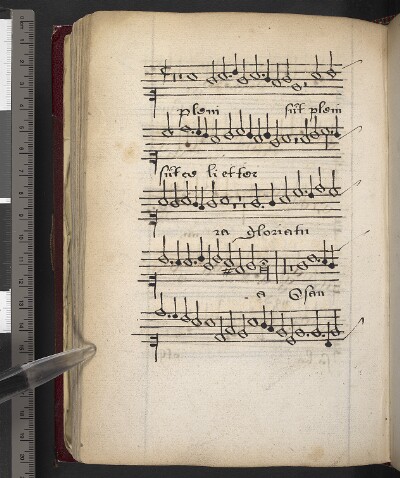 pleni sūt pleni
sūt ce li et ter
ra gloria tu
a Osan